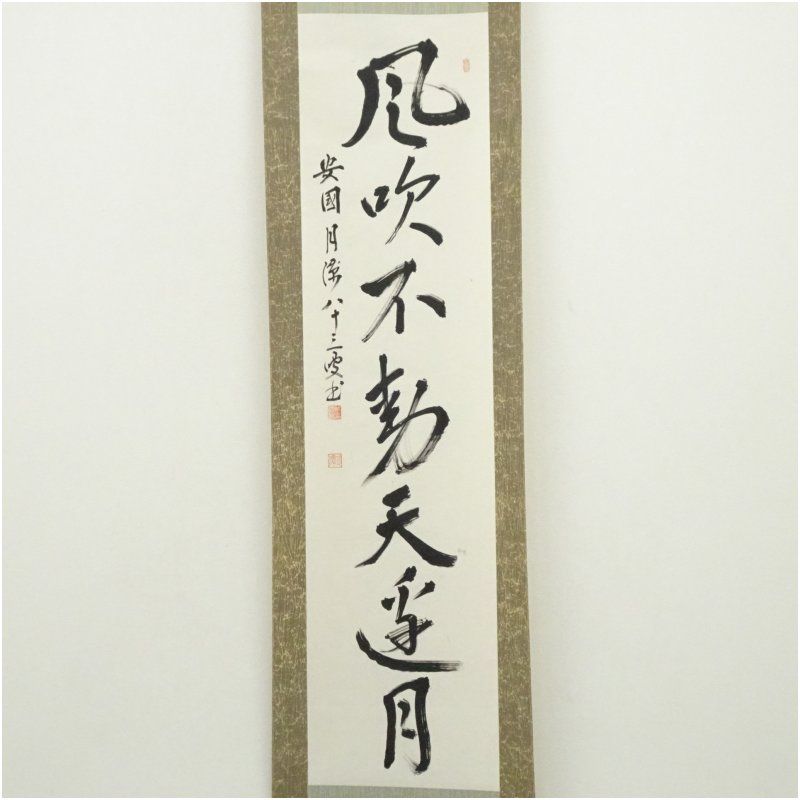 風吹不動天邊月
安國月潭八十三叟書